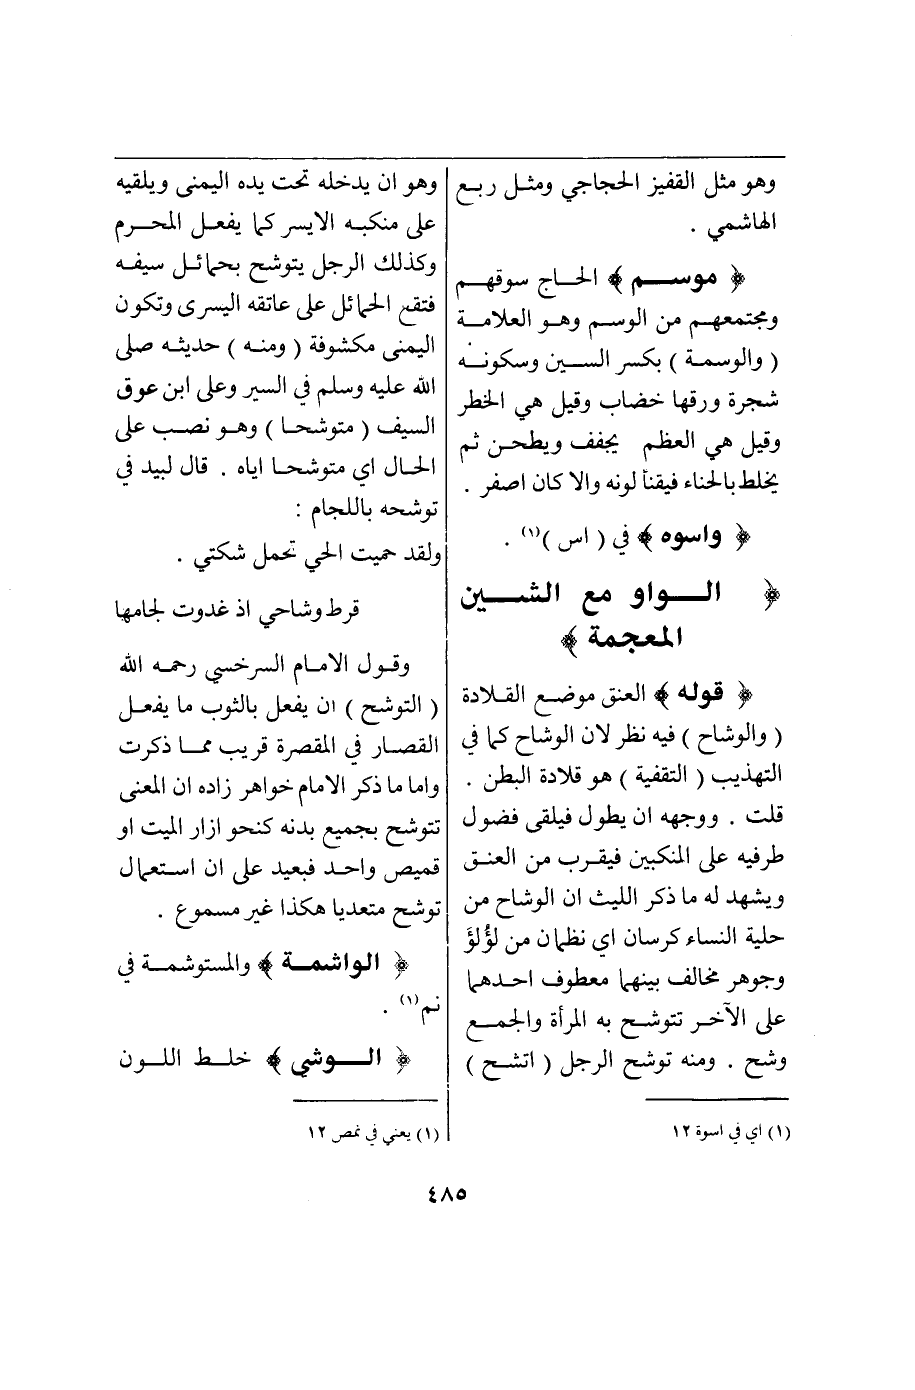 وهو مثل القفيز الحجاجي ومثل ربع
الهاشمي .
﴿ موسم ﴾ الحاج سوقهم
ومجتمعهم من الوسم وهو العلامة
( والوسمة ) بكسر السين وسكونه
شجرة ورقها خضاب وقيل هي الخطر
وقيل هي العظم يجفف ويطحن ثم
يخلط بالحناء فيقنأ لونه والا كان اصفر .
﴿ واسوه ﴾ في ( اس )(١) .
﴿ الواو مع الشين
المعجمة ﴾
﴿ قوله ﴾ العنق موضع القلادة
( والوشاح ) فيه نظر لان الوشاح كما في
التهذيب ( التقفية ) هو قلادة البطن .
قلت . ووجهه ان يطول فيلقى فضول
طرفيه على المنكبين فيقرب من العنق
ويشهد له ما ذكر الليث ان الوشاح من
حلية النساء كرسان اي نظمان من لؤلؤ
وجوهر مخالف بينهما معطوف احدهما
على الآخر تتوشح به المرأة والجمع
وشح . ومنه توشح الرجل ( اتشح )
(١) اي في اسوة ١٢
وهو ان يدخله تحت يده اليمنى ويلقيه
على منكبه الايسر كما يفعل المحرم
وكذلك الرجل يتوشح بحمائل سيفه
فتقع الحمائل على عاتقه اليسرى وتكون
اليمنى مكشوفة ( ومنه ) حديثه صلى
الله عليه وسلم في السير وعلى ابن عوق
السيف ( متوشحا ) وهو نصب على
الحال اي متوشحا اياه . قال لبيد في
توشحه باللجام :
ولقد حميت الحي تحمل شكتي .
قرط وشاحي اذ غدوت لجامها
وقول الامام السرخسي رحمه الله
( التوشح ) ان يفعل بالثوب ما يفعل
القصار في المقصرة قريب مما ذكرت
واما ما ذكر الامام خواهر زاده ان المعنى
تتوشح بجميع بدنه كنحو ازار الميت او
قميص واحد فبعيد على ان استعمال
توشح متعديا هكذا غير مسموع .
﴿ الواشمة ﴾ والمستوشمة في
نم(١) .
﴿ الوشي ﴾ خلط اللون
(١) يعني في نمص ١٢
٤٨٥